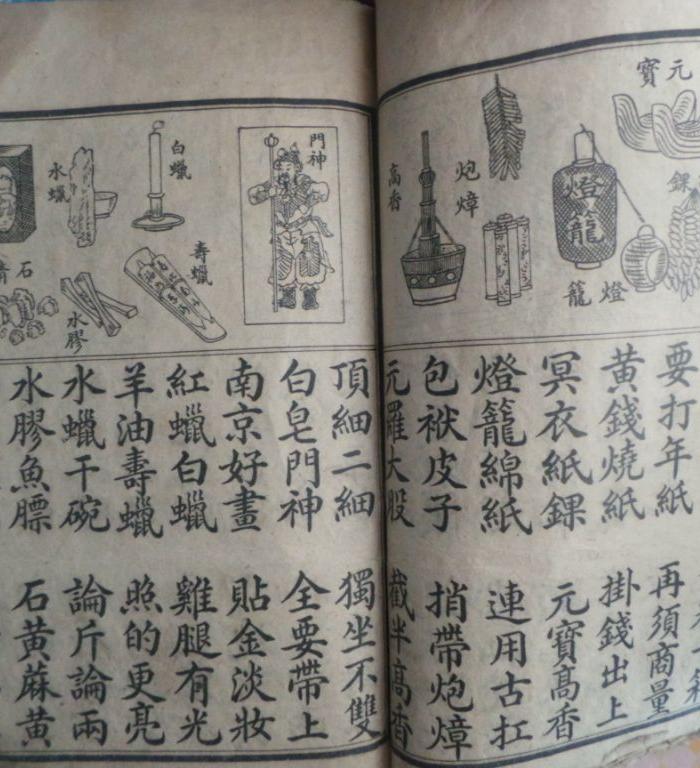 元寶
錁
燈籠
燈籠
炮爐
高香
門神
白蠟
水蠟
壽蠟
水膠
石膏
要打年紙
再須商量
黃錢燒紙
掛錢出上
冥衣紙錁
元寶高香
燈籠綿紙
連用古扛
包袱皮子
捎帶炮爐
元羅大股
截半高香
頂細二細
獨坐不雙
白皂門神
全要帶上
南京好畫
貼金淡妝
紅蠟白蠟
雞腿有光
羊油壽蠟
照的更亮
水蠟干碗
論斤論兩
水膠魚膘
石黃蔴黃